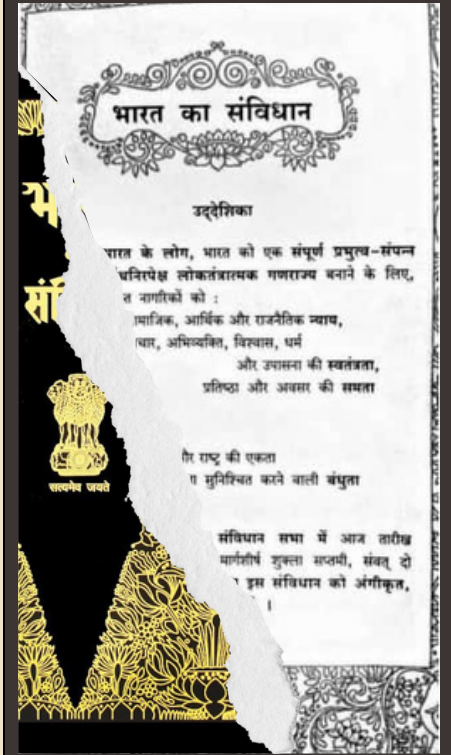 भारत का संविधान
उद्देशिका
भारत के लोग, भारत को एक संपूर्ण प्रभुत्व-सम्पन्न
लोकतंत्रात्मक गणराज्य बनाने के लिए,
नागरिकों को :
आर्थिक और राजनैतिक न्याय,
अभिव्यक्ति, विश्वास, धर्म
और उपासना की स्वतंत्रता,
प्रतिष्ठा और अवसर की समता
राष्ट्र की एकता
सुनिश्चित करने वाली बंधुता
संविधान सभा में आज तारीख
मार्गशीर्ष शुक्ला सप्तमी, संवत् दो
इस संविधान को अंगीकृत,
।
सत्यमेव जयते